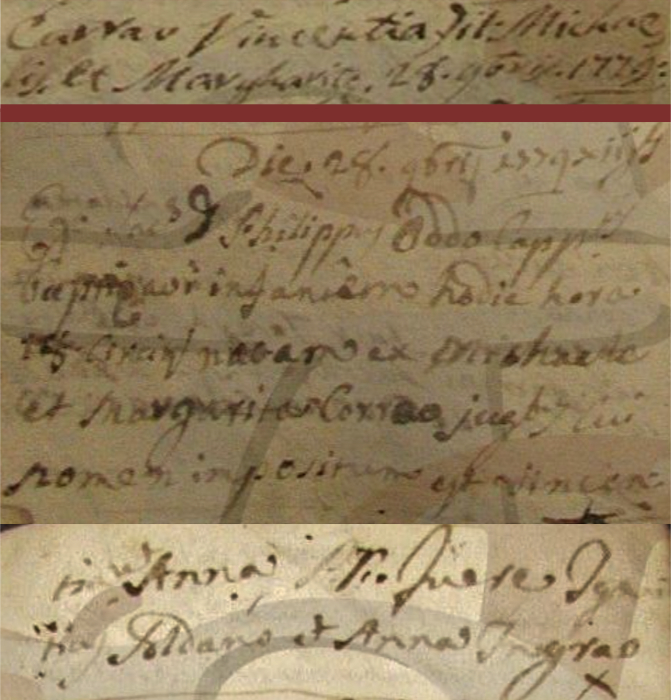 Carrao Vincentia fil: Michae
lis, et Margharite. 28. 9bris. 1779:
Die. 28. 9bris 1779
Philippus Oddo Capp
infantem hodie hora
natam ex Michaele
et Margarita Corrao jug: cui
nomen impositum est Vincen
Anna PP. fuere Igna
tius Aldano et Anna Ingrao